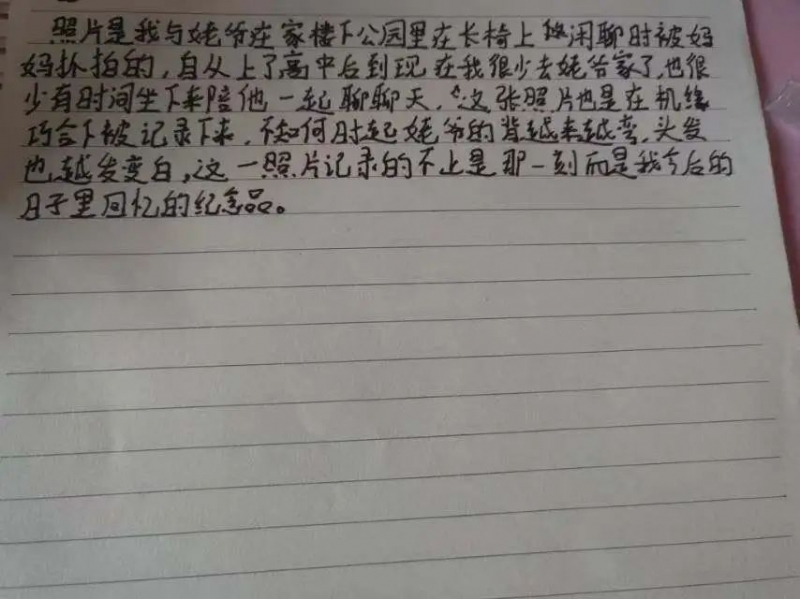 照片是我与姥爷在家楼下公园里在长椅上悠闲聊时被妈
妈抓拍的，自从上了高中后到现在我很少去姥爷家了，也很
少有时间坐下来陪他一起聊聊天，这张照片也是在机缘
巧合下被记录下来，不知何时起姥爷的背越来越弯，头发
也越发变白，这一照片记录的不止是那一刻而是我今后的
日子里回忆的纪念品。